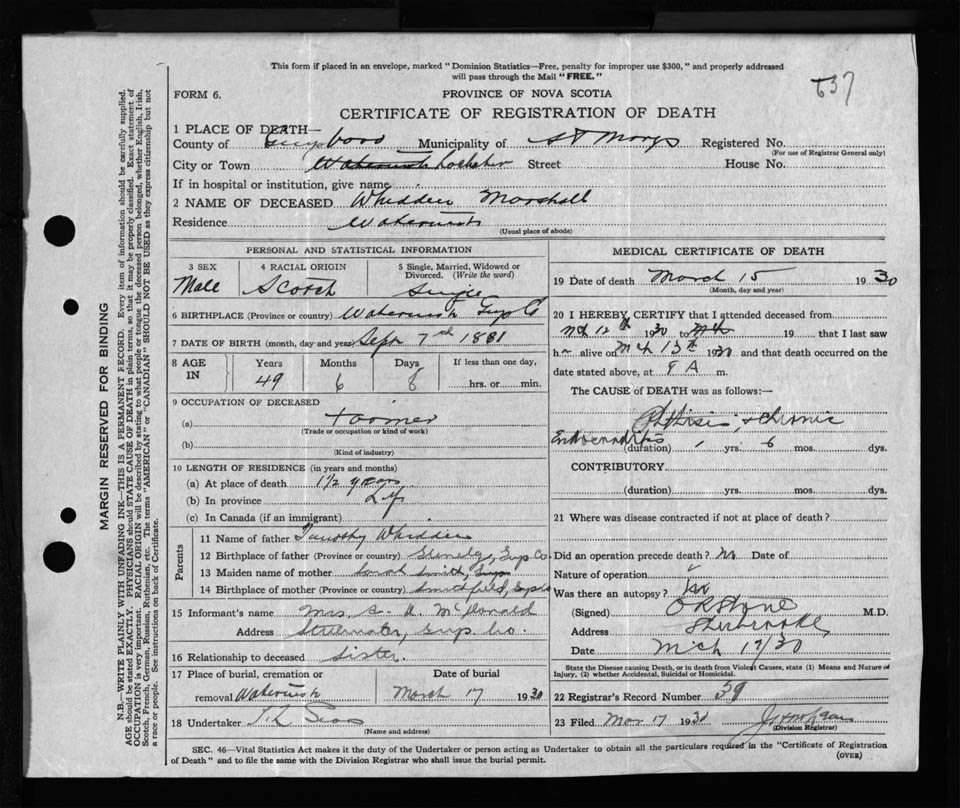 This form if placed in an envelope, marked "Dominion Statistics—Free, penalty for improper use $300," and properly addressed
will pass through the Mail "FREE."
637
FORM 6.
PROVINCE OF NOVA SCOTIA
CERTIFICATE OF REGISTRATION OF DEATH
1 PLACE OF DEATH—
County of Guysboro Municipality of St Marys Registered No.
(For use of Registrar General only)
City or Town Street House No.
If in hospital or institution, give name
2 NAME OF DECEASED Whidden Marshall
Residence
(Usual place of abode)
PERSONAL AND STATISTICAL INFORMATION
3 SEX
Male
4 RACIAL ORIGIN
Scotch
5 Single, Married, Widowed or Divorced. (Write the word)
Single
6 BIRTHPLACE (Province or country) Guys Co
7 DATE OF BIRTH (month, day and year) Sept 7 1881
8 AGE IN
Years Months Days If less than one day,
49 6 8 hrs. or min.
9 OCCUPATION OF DECEASED
(a) Farmer
(Trade or occupation or kind of work)
(b)
(Kind of industry)
10 LENGTH OF RESIDENCE (in years and months)
(a) At place of death 1½ years
(b) In province
(c) In Canada (if an immigrant)
Parents
11 Name of father Timothy Whidden
12 Birthplace of father (Province or country) Glenelg, Guys Co.
13 Maiden name of mother Sarah Smith,
14 Birthplace of mother (Province or country) Smithfield, Guys Co
15 Informant's name Mrs. McDonald
Address Stillwater, Guys. Co.
16 Relationship to deceased Sister.
17 Place of burial, cremation or Date of burial
removal March 17 1930
18 Undertaker
(Name and address)
MEDICAL CERTIFICATE OF DEATH
19 Date of death March 15 1930
(Month, day and year)
20 I HEREBY CERTIFY that I attended deceased from
Mch 12th 1930 to Mch 19 that I last saw
h alive on Mch 13th 1930 and that death occurred on the
date stated above, at A m.
The CAUSE OF DEATH was as follows:—
Phthisis, + chronic
Endocarditis (duration) yrs. 6 mos. dys.
CONTRIBUTORY
(duration) yrs. mos. dys.
21 Where was disease contracted if not at place of death?
Did an operation precede death? No Date of
Nature of operation
Was there an autopsy?
(Signed) M.D.
Address Sherbrooke,
Date Mch 17/30
State the Disease causing Death, or in death from Violent Causes, state (1) Means and Nature of
Injury, (2) whether Accidental, Suicidal or Homicidal.
22 Registrar's Record Number 39
23 Filed Mar 17 1930
(Division Registrar)
SEC. 46—Vital Statistics Act makes it the duty of the Undertaker or person acting as Undertaker to obtain all the particulars required in the "Certificate of Registration
of Death" and to file the same with the Division Registrar who shall issue the burial permit.
(OVER)
MARGIN RESERVED FOR BINDING
N.B.—WRITE PLAINLY WITH UNFADING INK—THIS IS A PERMANENT RECORD. Every item of information should be carefully supplied.
AGE should be stated EXACTLY. PHYSICIANS should STATE CAUSE OF DEATH in plain terms, so that it may be properly classified. Exact statement of
OCCUPATION is very important. RACIAL ORIGIN will be described by stating to what people or tongue the deceased person belonged, whether English, Irish,
Scotch, French, German, Russian, Ruthenian, etc. The terms "AMERICAN" or "CANADIAN" SHOULD NOT BE USED as they express citizenship but not
a race or people. See instructions on back of Certificate.